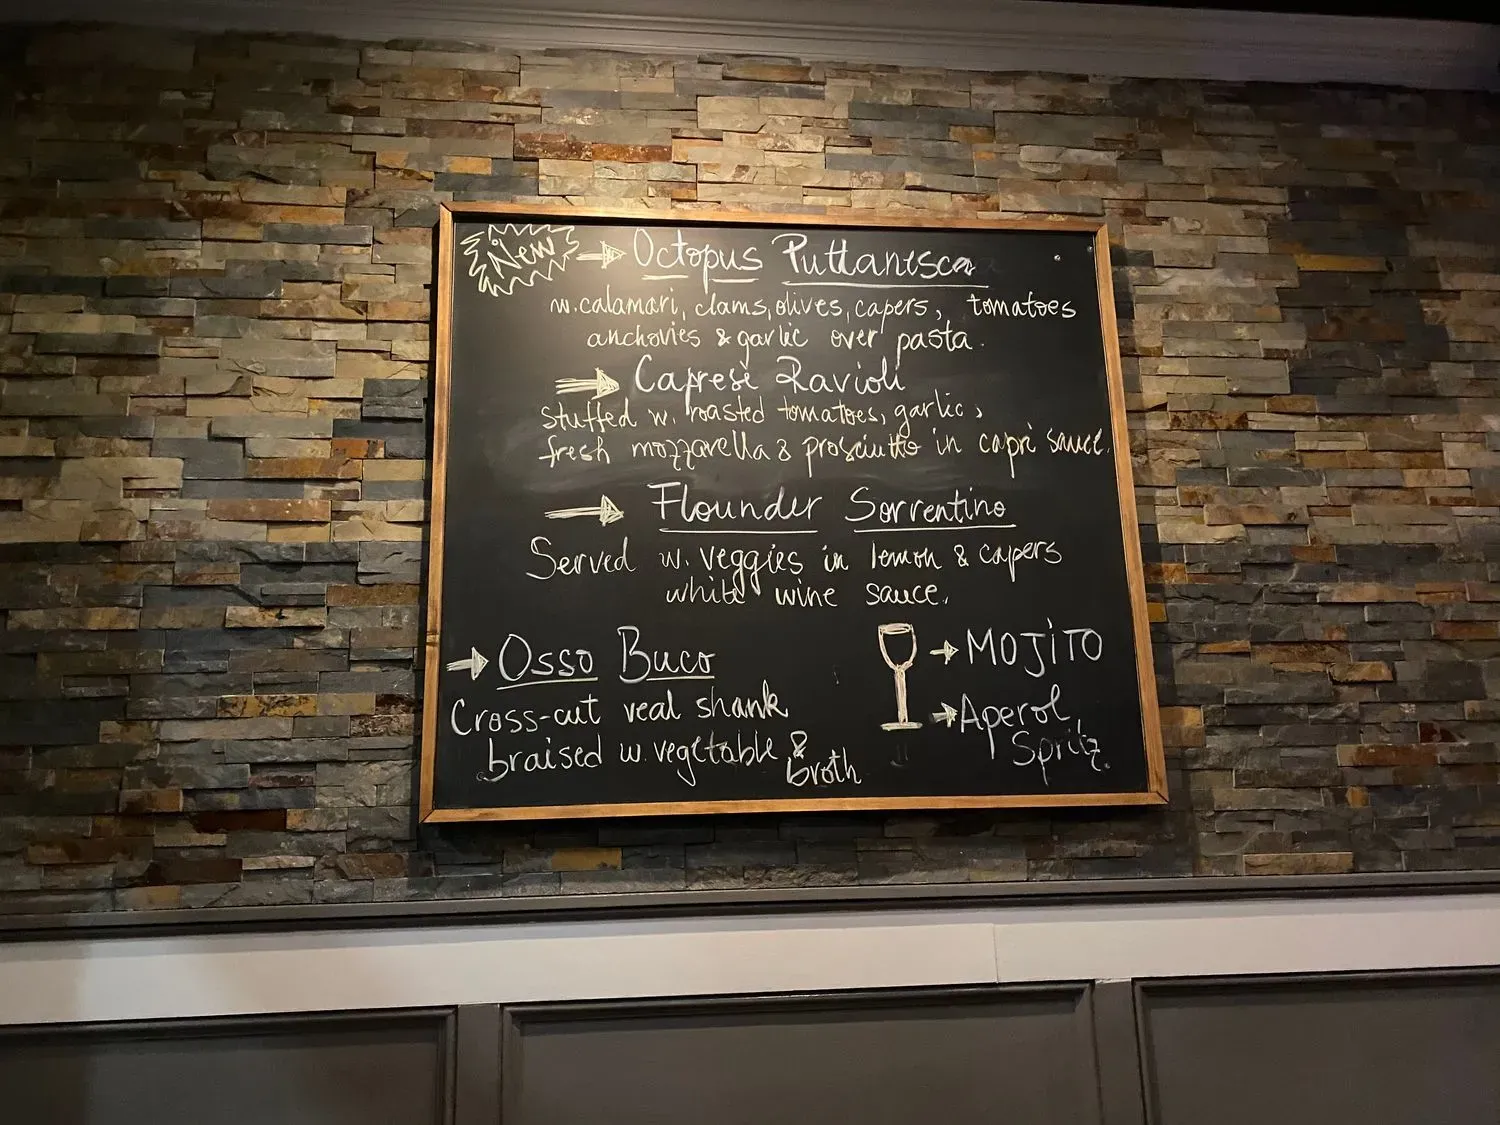 New → Octopus Puttanesca
w. calamari, clams, olives, capers, tomatoes
anchovies & garlic over pasta.
→ Caprese Ravioli
stuffed w. roasted tomatoes, garlic,
fresh mozzarella & prosciutto in capri sauce.
→ Flounder Sorrentino
Served w. veggies in lemon & capers
white wine sauce.
→ Osso Buco
Cross-cut veal shank
braised w. vegetable &
broth
→ MOJITO
→ Aperol
Spritz.